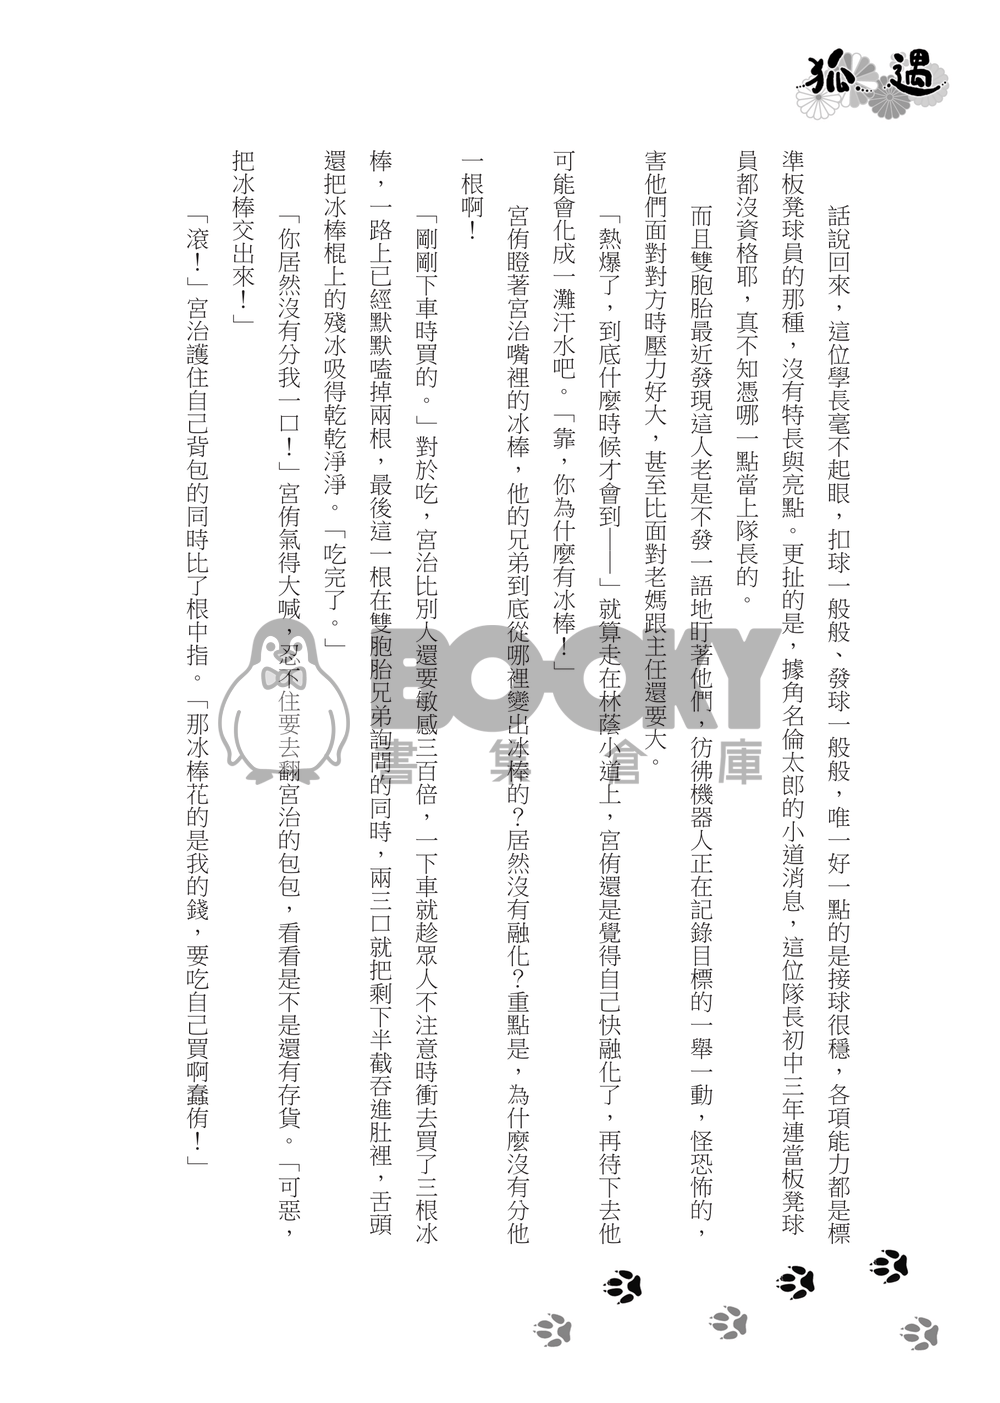 狐遇
話說回來，這位學長毫不起眼，扣球一般般、發球一般般，唯一好一點的是接球很穩，各項能力都是標
準板凳球員的那種，沒有特長與亮點。更扯的是，據角名倫太郎的小道消息，這位隊長初中三年連當板凳球
員都沒資格耶，真不知憑哪一點當上隊長的。
而且雙胞胎最近發現這人老是不發一語地盯著他們，彷彿機器人正在記錄目標的一舉一動，怪恐怖的，
害他們面對對方時壓力好大，甚至比面對老媽跟主任還要大。
「熱爆了，到底什麼時候才會到——」就算走在林蔭小道上，宮侑還是覺得自己快融化了，再待下去他
可能會化成一灘汗水吧。「靠，你為什麼有冰棒！」
宮侑瞪著宮治嘴裡的冰棒，他的兄弟到底從哪裡變出冰棒的？居然沒有融化？重點是，為什麼沒有分他
一根啊！
「剛剛下車時買的。」對於吃，宮治比別人還要敏感三百倍，一下車就趁眾人不注意時衝去買了三根冰
棒，一路上已經默默嗑掉兩根，最後這一根在雙胞胎兄弟詢問的同時，兩三口就把剩下半截吞進肚裡，舌頭
還把冰棒棍上的殘冰吸得乾乾淨淨。「吃完了。」
「你居然沒有分我一口！」宮侑氣得大喊，忍不住要去翻宮治的包包，看看是不是還有存貨。「可惡，
把冰棒交出來！」
「滾！」宮治護住自己背包的同時比了根中指。「那冰棒花的是我的錢，要吃自己買啊蠢侑！」
BOOKY
書集倉庫